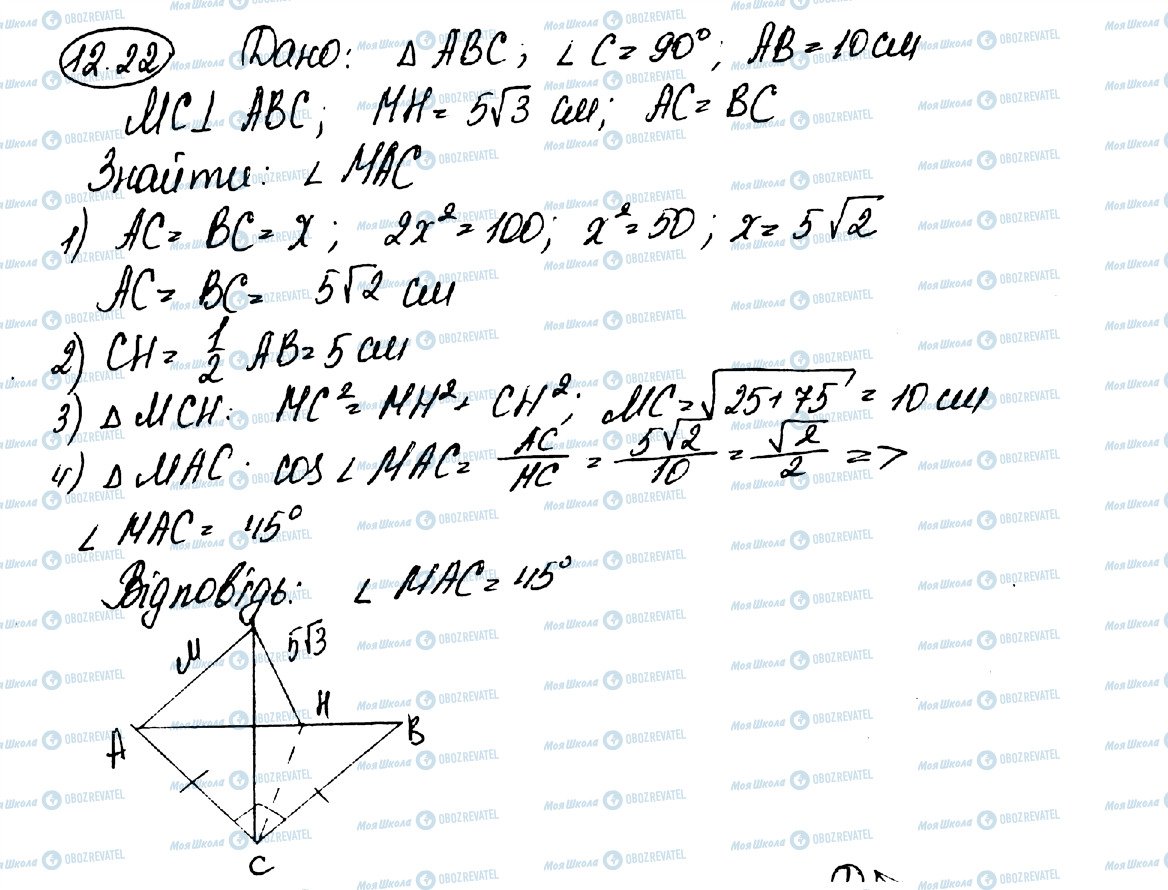 12.22 Дано: △ ABC; ∠ C = 90°; AB = 10 см
MC ⊥ ABC; MH = 5√3 см; AC = BC
Знайти: ∠ MAC
1) AC = BC = x; 2x² = 100; x² = 50; x = 5√2
AC = BC = 5√2 см
2) CH = 1/2 AB = 5 см
3) △ MCH: MC² = MH² + CH²; MC = √25+75 = 10 см
4) △ MAC: cos ∠ MAC = AC/MC = 5√2/10 = √2/2 =>
∠ MAC = 45°
Відповідь: ∠ MAC = 45°
M 5√3
H
A B
C
Моя Школа OBOZREVATEL